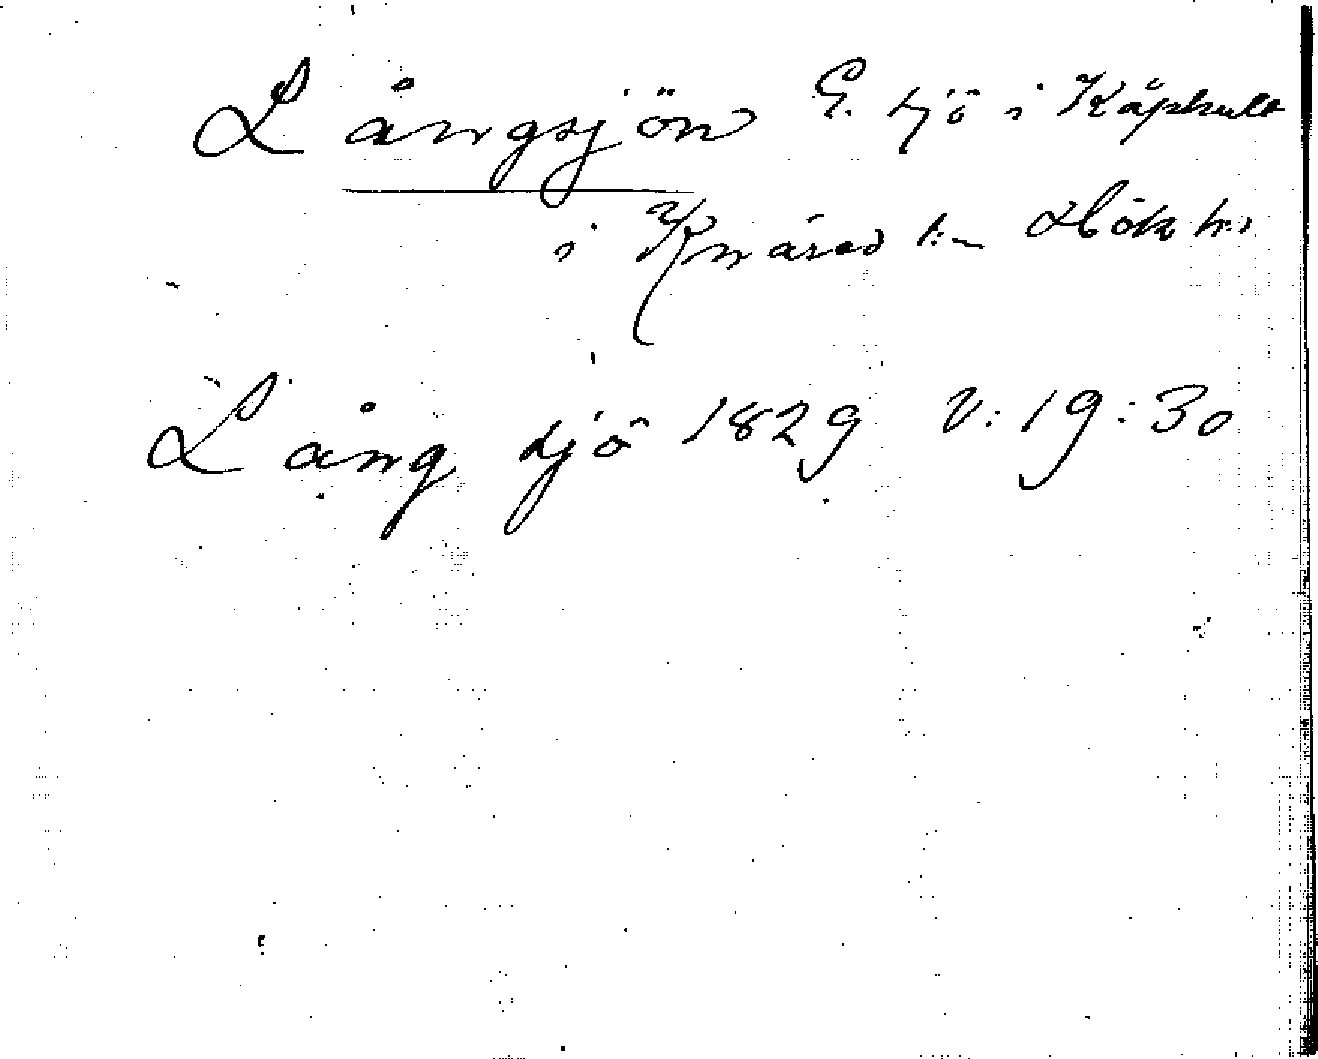 Långsjön G. sjö i Kåphult
i Knäred sn Hök hd
Lång sjö 1829 V:19:30